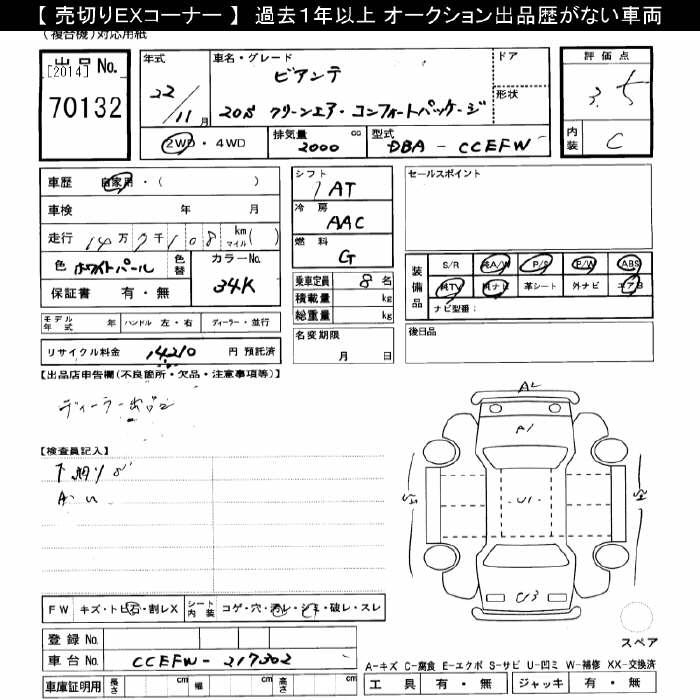 【 売切りEXコーナー 】 過去1年以上 オークション出品歴がない車両
(複合機)対応用紙
出品 No.
[2014]
70132
年式
22/11月
車名・グレード
ビアンテ
20S クリーンエア・コンフォートパッケージ
ドア
形状
評価点
3.5
内装
C
2WD・4WD
排気量
2000
cc
型式
DBA - CCEFW
車歴 自家用・( )
車検 年 月
走行 14万7千108 km マイル( )
色 ホワイトパール
色替
カラーNo.
34K
保証書 有・無
モデル年式 年 ハンドル 左・右 ディーラー・並行
リサイクル料金 14,210 円 預託済
シフト
AT
冷房
AAC
燃料
G
乗車定員 8 名
積載量 kg
総重量 kg
名変期限
月 日
セールスポイント
装備品
S/R 純A/W P/S P/W ABS
純TV 純ナビ 革シート 外ナビ エアB
ナビ型番:
後日品
【出品店申告欄(不良箇所・欠品・注意事項等)】
ディーラー出品
【検査員記入】
下廻りサビ
A2
A1
U1
U3
FW キズ・トビ石・割レX
シート内装 コゲ・穴・汚レ・シミ・破レ・スレ
登録 No.
車台 No. CCEFW - 217302
車庫証明用 長さ cm 幅 cm 高さ cm
スペア
A-キズ C-腐食 E-エクボ S-サビ U-凹ミ W-補修 XX-交換済
工具 有・無 ジャッキ 有・無